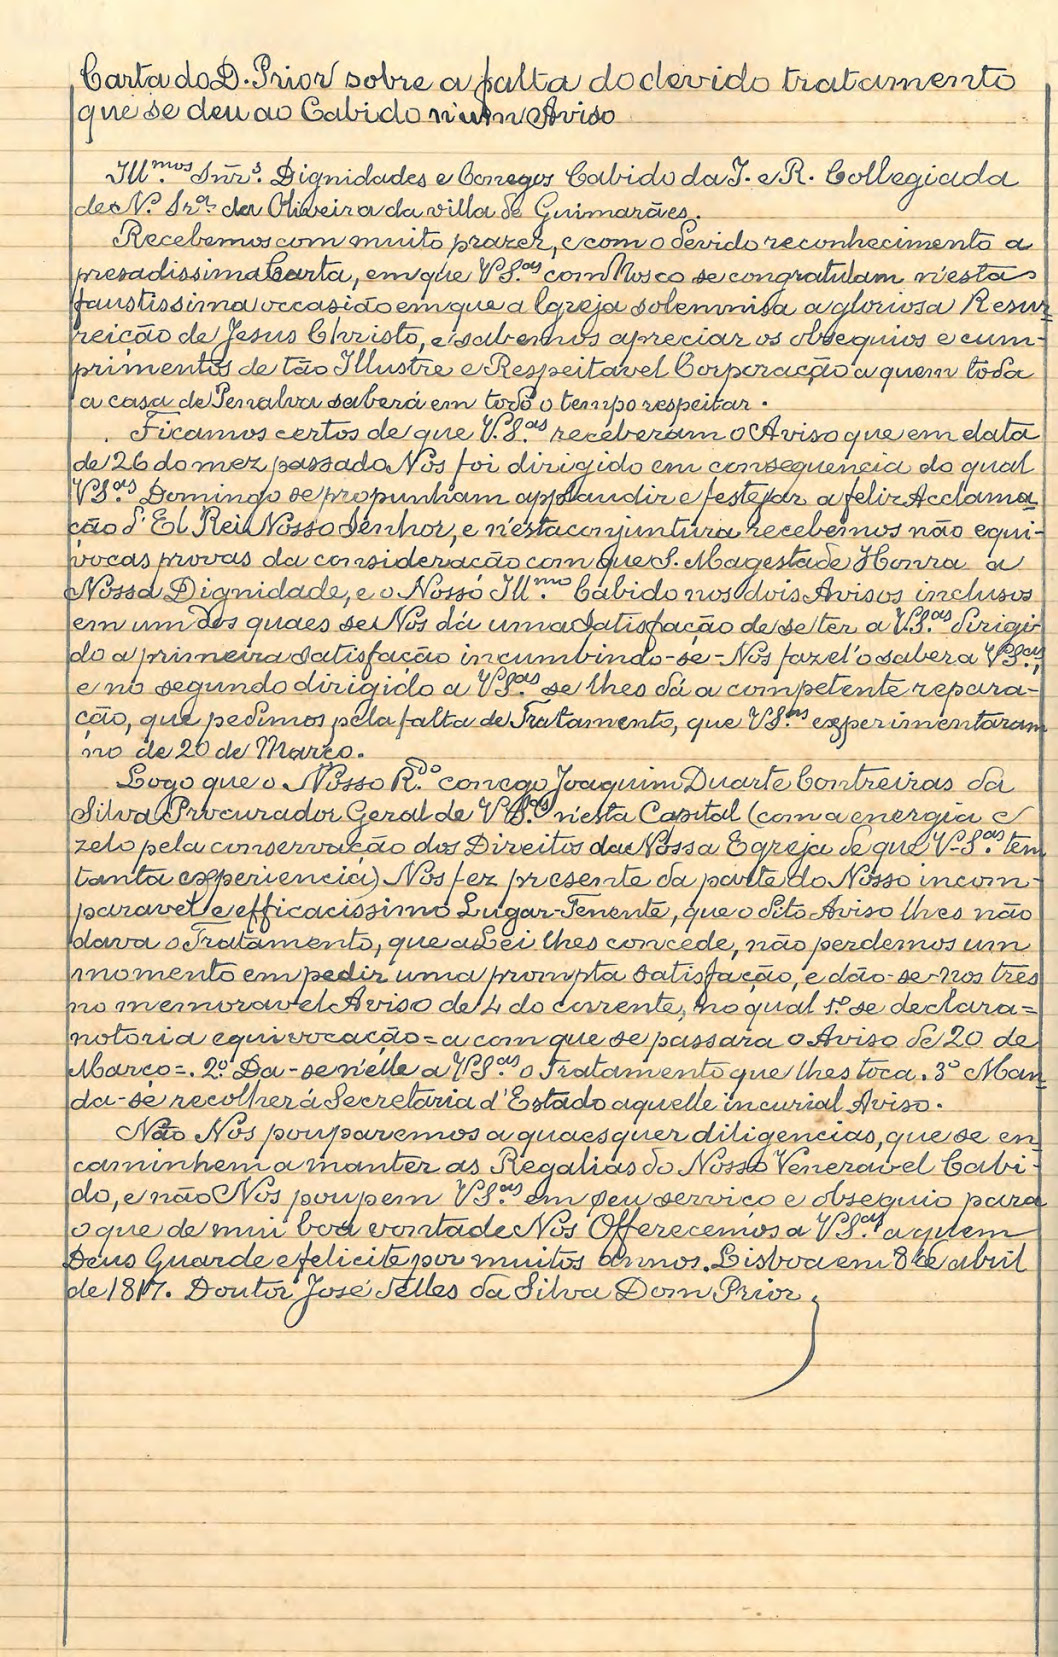 Carta do D. Prior sobre a falta do devido tratamento
que se deu ao Cabido n'um Aviso
Ill.mos Snr.s Dignidades e Conegos Cabido da I. e R. Collegiada
de N. Sr.a da Oliveira da villa de Guimarães.
Recebemos com muito prazer, e com o devido reconhecimento a
presadissima Carta, em que V S.as com Nosco se congratulam n'esta
faustissima occasião em que a Igreja solemnisa a gloriosa Resur-
reição de Jesus Christo, e sabemos apreciar os obsequios e cum-
primentos de tão Illustre e Respeitavel Corporação a quem toda
a casa de Penalva saberá em todo o tempo respeitar.
Ficamos certos de que V. S.as receberam o Aviso que em data
de 26 do mez passado Nos foi dirigido em consequencia do qual
V S.as Domingo se propunham applaudir e festejar a feliz Acclama-
ção d'El Rei Nosso Senhor, e n'esta conjuntura recebemos não equi-
vocas provas da consideração com que S. Magestade Honra a
Nossa Dignidade, e o Nosso Ill.mo Cabido nos dois Avisos inclusos
em um dos quaes se Nos dá uma satisfação de se ter a V.S.as dirigi-
do a primeira satisfação incumbindo-se-Nos fazel'o saber a V S.as,
e no segundo dirigido a V S.as se lhes dá a competente repara-
ção, que pedimos pela falta de Tratamento, que V S.as experimentaram
no de 20 de Março.
Logo que o Nosso R.do conego Joaquim Duarte Contreiras da
Silva Procurador Geral de V S.as n'esta Capital (com a energia e
zelo pela conservação dos Direitos da Nossa Egreja de que V. S.as tem
tanta experiencia) Nos fez presente da parte do Nosso incom-
paravel e efficacissimo Lugar-Tenente, que o dito Aviso lhes não
dava o Tratamento, que a Lei lhes concede, não perdemos um
momento em pedir uma prompta satisfação, e dão-se-nos três
no memoravel Aviso de 4 do corrente, no qual 1º se declara =
notoria equivocação = a com que se passara o Aviso de 20 de
Março =. 2º Da-se n'elle a V S.as o Tratamento que lhes toca. 3º Man-
da-se recolher á Secretaria d'Estado aquelle incurial Aviso.
Não Nos pouparemos a quaesquer diligencias, que se en-
caminhem a manter as Regalias do Nosso Veneravel Cabi-
do, e não Nos poupem V S.as em seu serviço e obsequio para
o que de mui boa vontade Nos Offerecemos a V S.as a quem
Deus Guarde e felicite por muitos annos. Lisboa em 8 de abril
de 1817. Doutor José Telles da Silva Dom Prior.